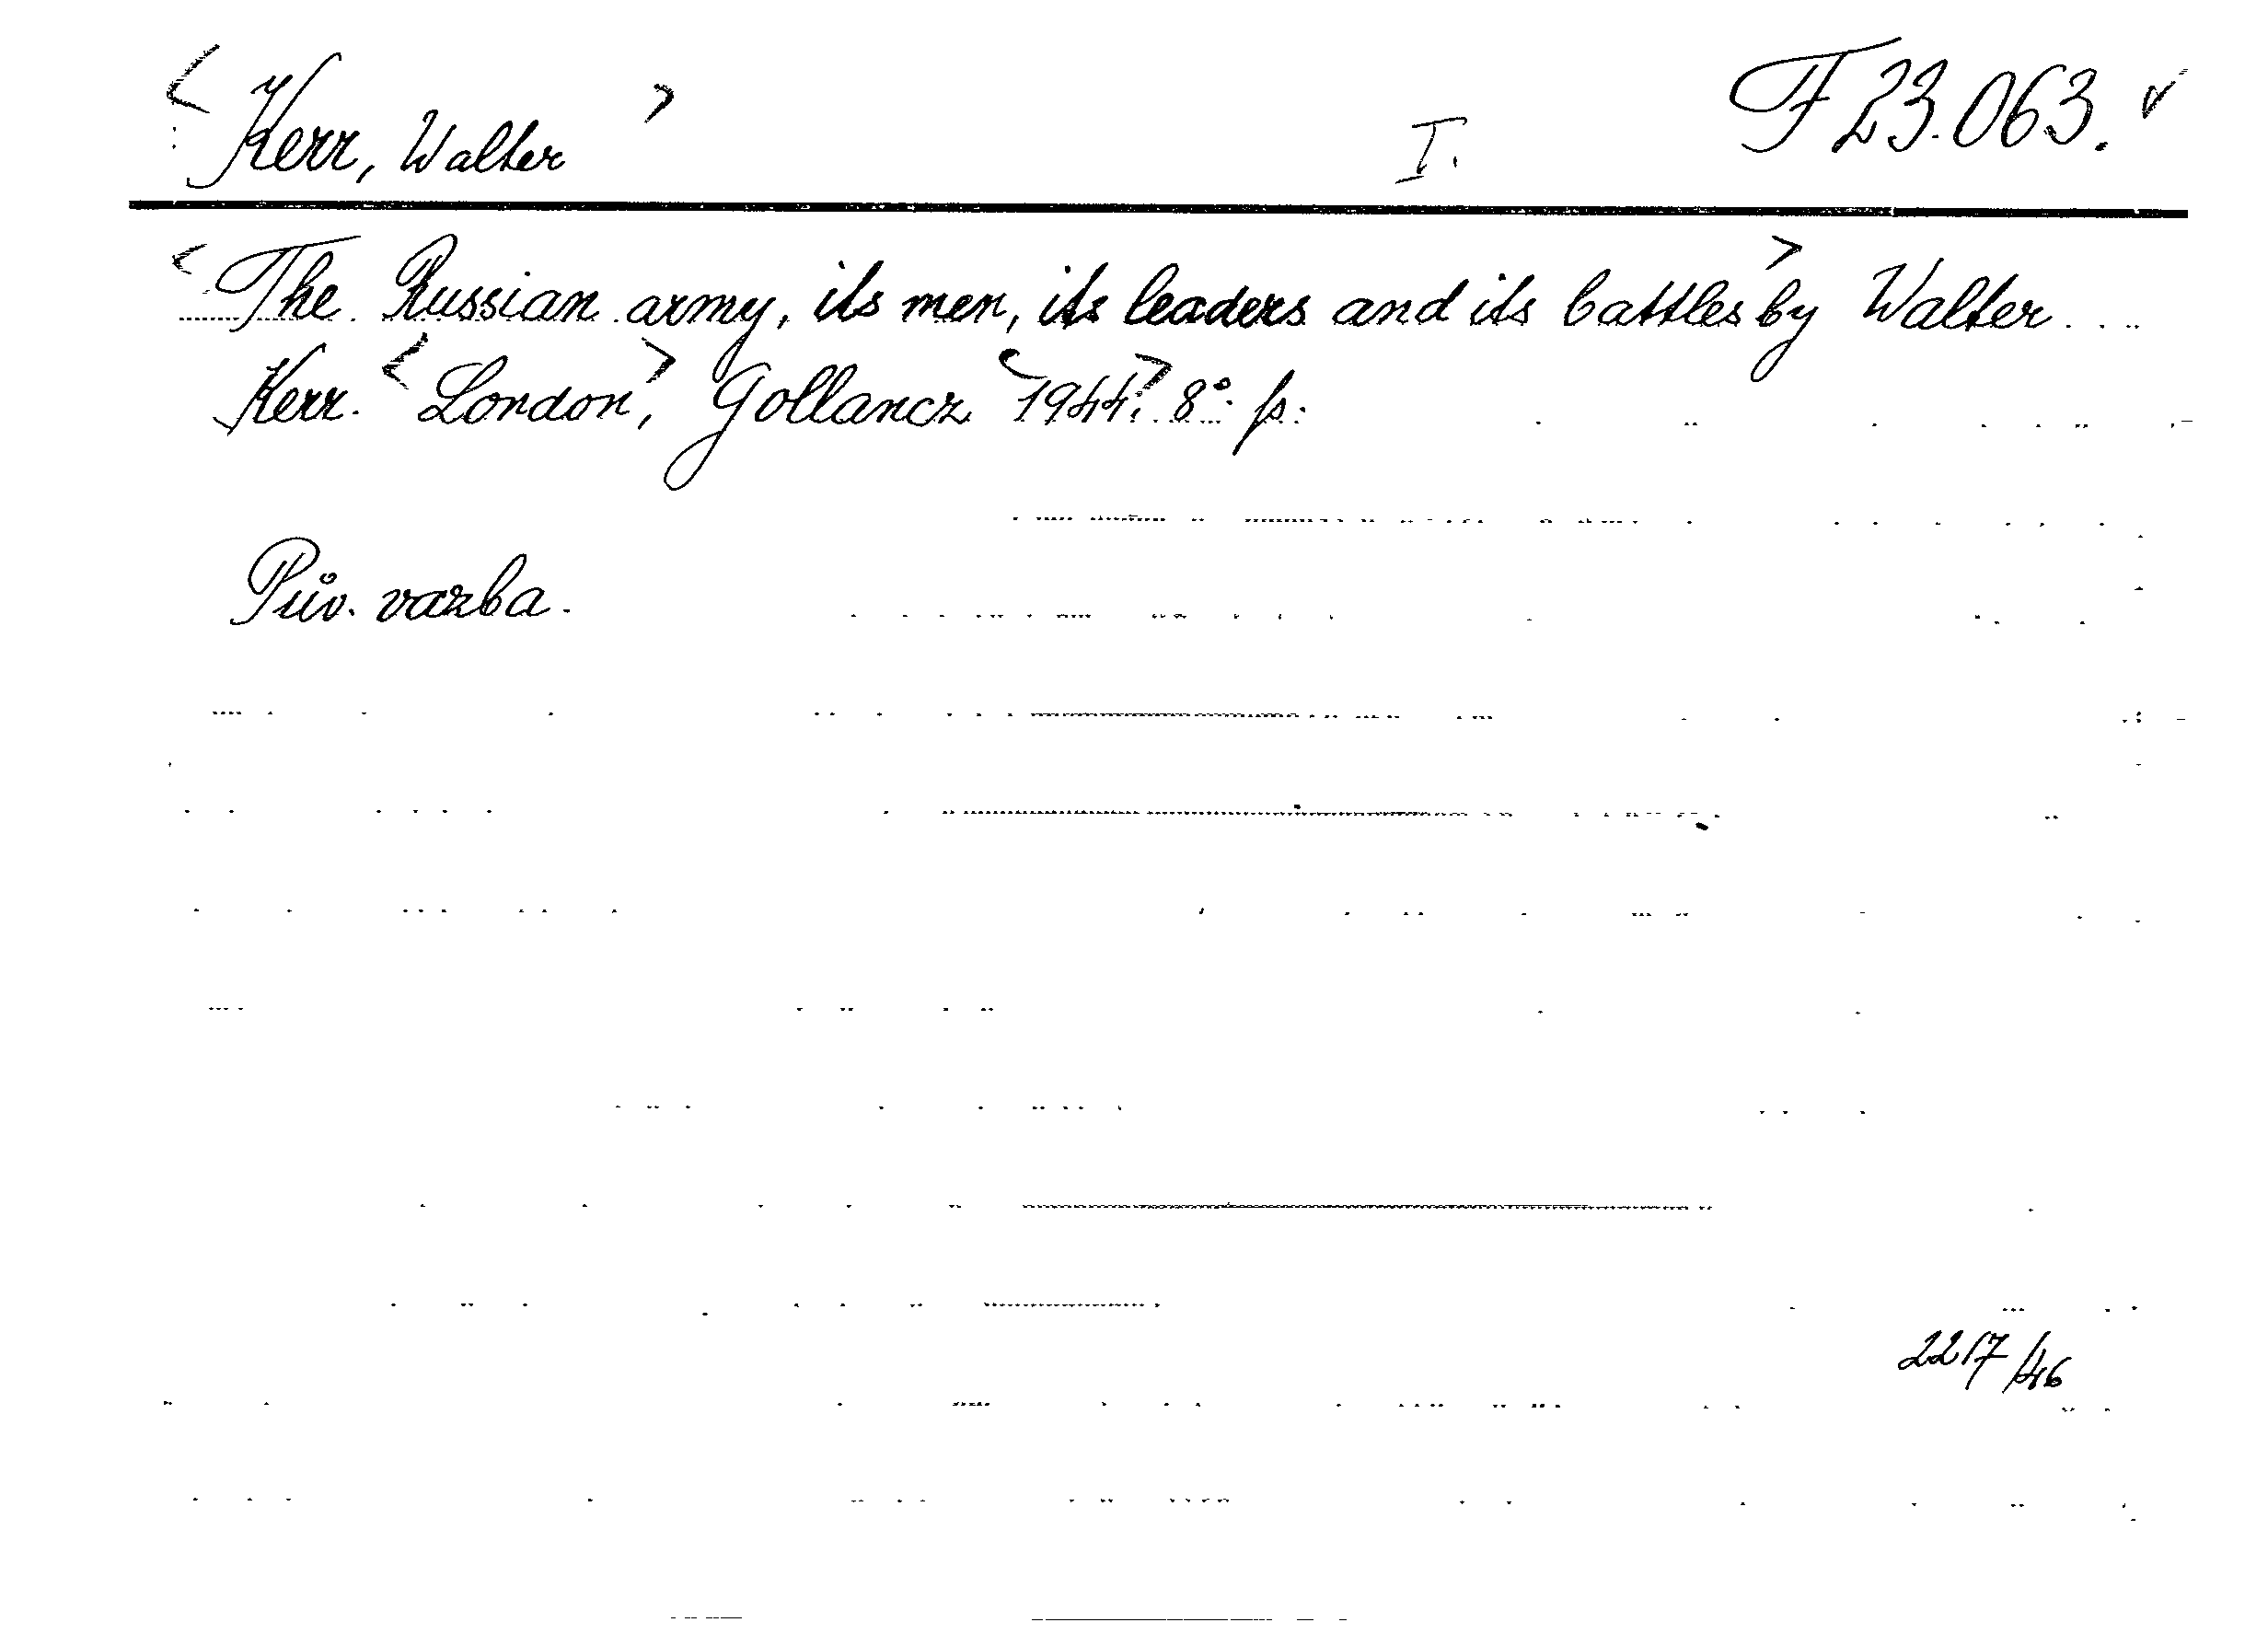 <Kerr, Walter> I. F 23.063. ✓
<The Russian army, its men, its leaders and its battles> by Walter
Kerr. <London>, Gollancz <1944>. 8°. p.
Pův. vazba.
2217/46